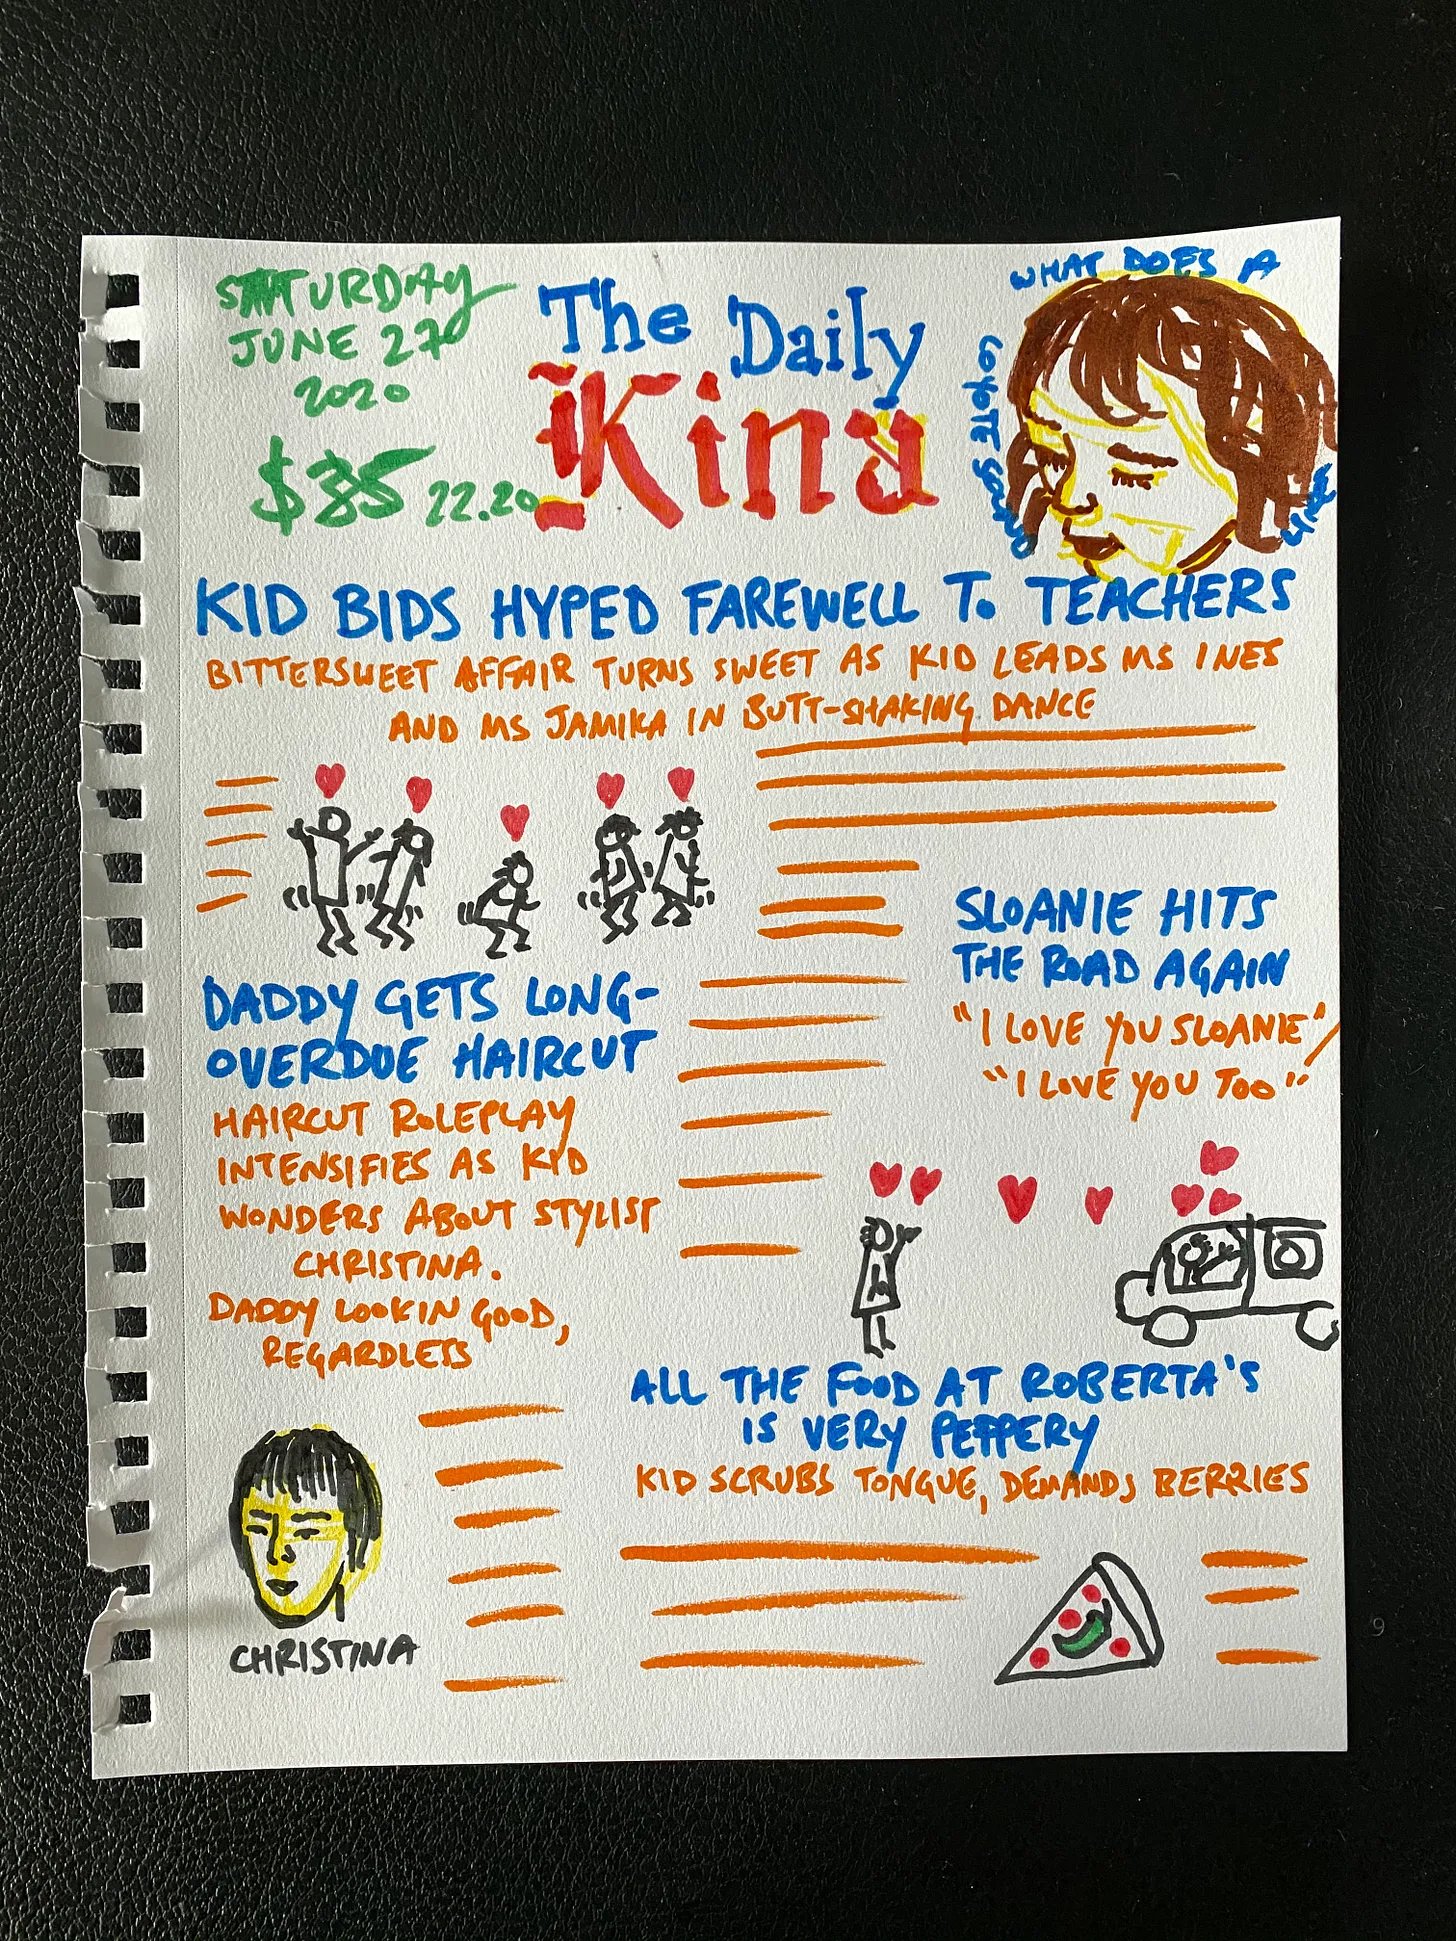 SATURDAY
JUNE 27
2020
$35 22.20
The Daily
Kina
WHAT DOES A
COYOTE SOUND
LIKE
KID BIDS HYPED FAREWELL T. TEACHERS
BITTERSWEET AFFAIR TURNS SWEET AS KID LEADS MS INES
AND MS JAMIKA IN BUTT-SHAKING DANCE
DADDY GETS LONG-
OVERDUE HAIRCUT
HAIRCUT ROLEPLAY
INTENSIFIES AS KID
WONDERS ABOUT STYLIST
CHRISTINA.
DADDY LOOKIN GOOD,
REGARDLESS
CHRISTINA
SLOANIE HITS
THE ROAD AGAIN
"I LOVE YOU SLOANIE"/
"I LOVE YOU TOO"
ALL THE FOOD AT ROBERTA'S
IS VERY PEPPERY
KID SCRUBS TONGUE, DEMANDS BERRIES
9